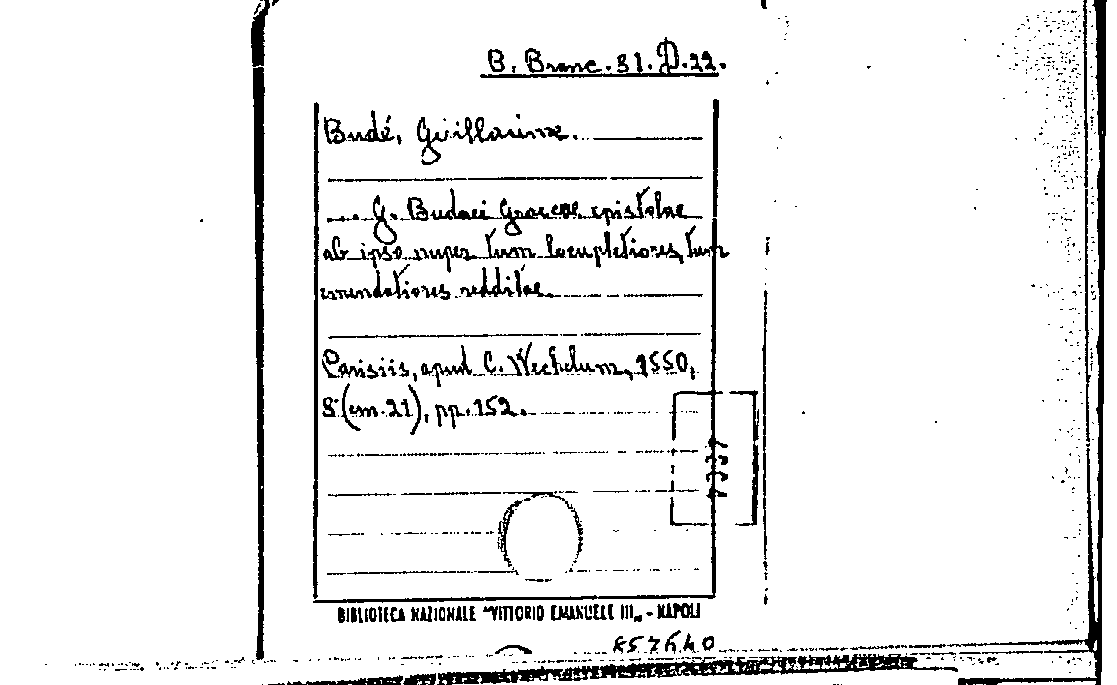 B. Branc. 31. D. 22.
Budé, Guillaume.
... G. Budaei Graecae epistolae
ab ipso nuper tum locupletiores, tum
emendatiores redditae.
Parisiis, apud C. Wechelum, 1550,
8° (cm. 21), pp. 152.
BIBLIOTECA NAZIONALE "VITTORIO EMANUELE III„ - NAPOLI
857640